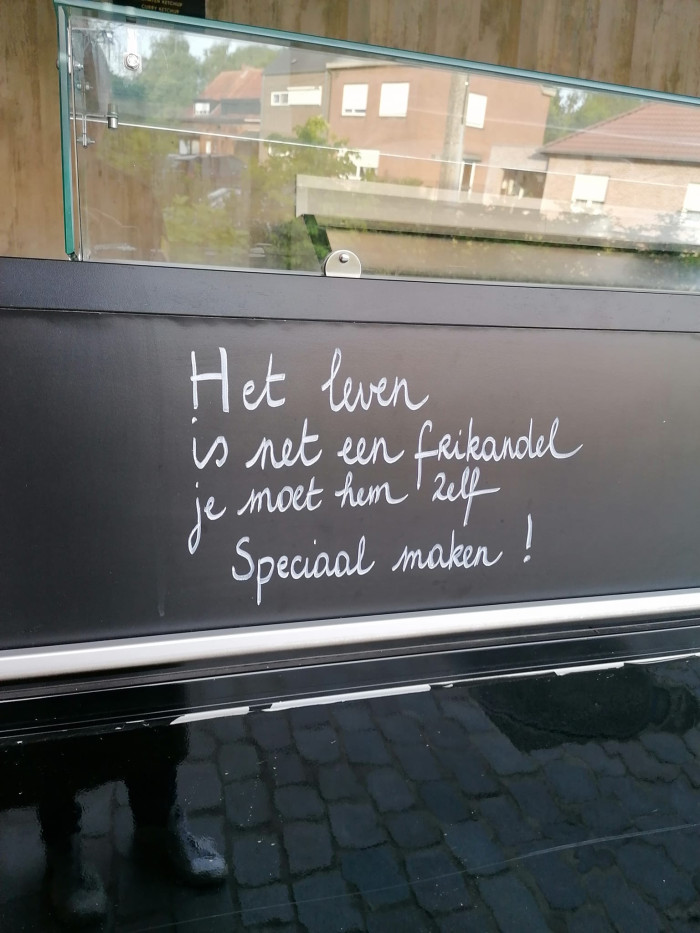 CURRY KETCHUP
Het leven
is net een frikandel
je moet hem zelf
Speciaal maken !